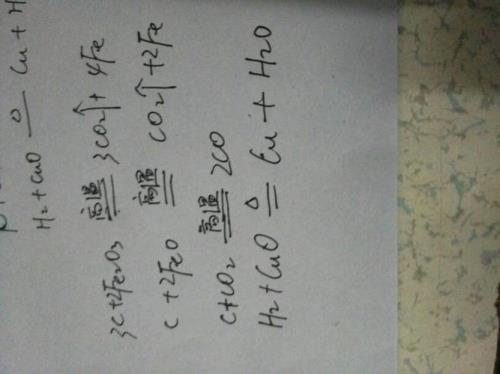 H₂+CuO ≜ Cu + H
3C+2Fe₂O₃ 高温══ 3CO₂↑+4Fe
C+2FeO 高温══ CO₂↑+2Fe
C+CO₂ 高温══ 2CO
H₂+CuO ≜ Cu + H₂O